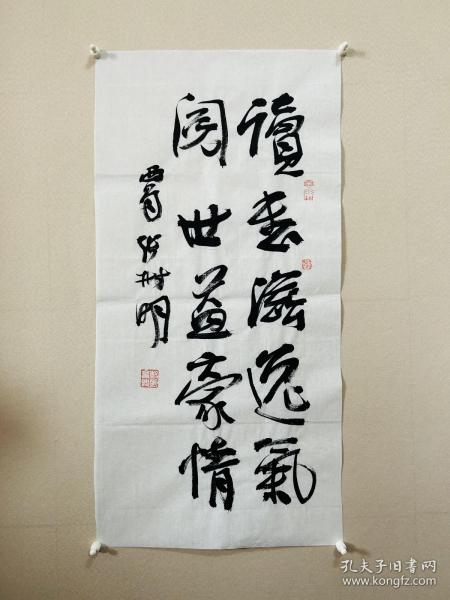 讀書滋逸氣
閱世益豪情
西蜀張樹明
孔夫子旧书网
www.kongfz.com